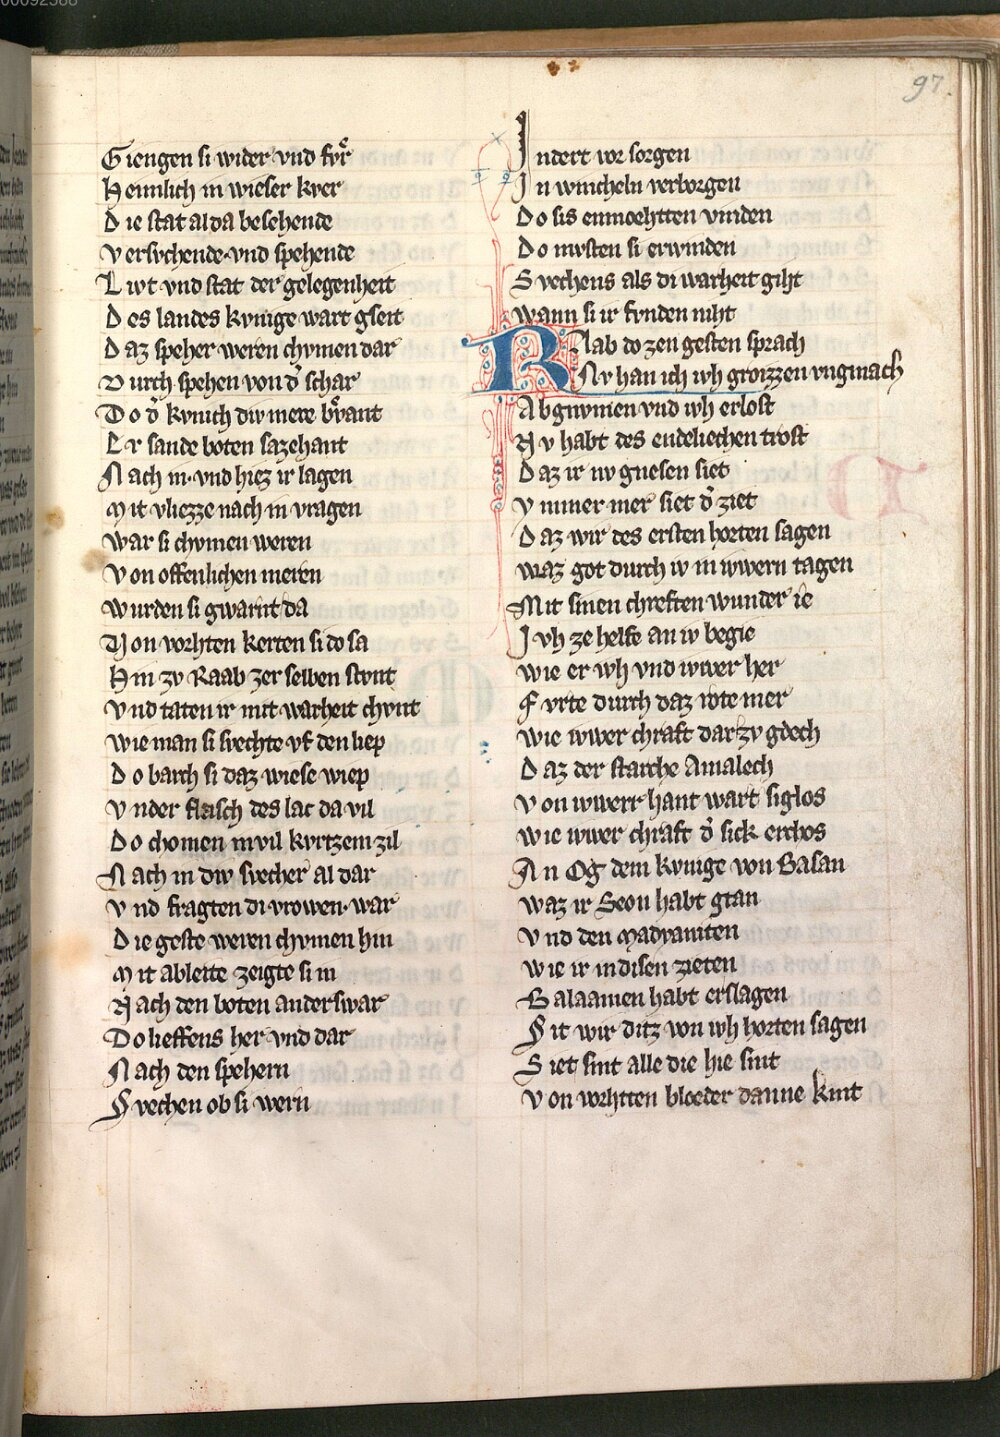 97.
Giengen si wider vnd fvͤr
Heimlich in wieser kver
Die stat alda besehende
Versvchende·vnd spehende
Livt vnd stat der gelegenheit
Des landes kvnige wart gseit
Daz speher weren chvmen dar
Durch spehen von d̾ schar
Do d̾ kvnich div mere bevant
Er sande boten sazehant
Nach in·vnd hiez ir lagen
Mit vliezze nach in vragen
War si chvmen weren
Von offenlichen meren
Wurden si gwarnt da
Von vorhten kerten si do sa
Hin zv Raab zer selben stvnt
Vnd taten ir mit warheit chvnt
Wie man si svechte vf den liep
Do barch si daz wiese wiep
Vnder flaisch des lac da vil
Do chomen in vil kvrtzem zil
Nach in div svecher al dar
Vnd fragten di vrowen·war
Die geste weren chvmen hin
Mit ableite zeigte si in
Nach den boten anderswar
Do lieffens her vnd dar
Nach den spehern
Svechen ob si wern
Indert vor sorgen
In wincheln verborgen
Do sis enmoehtten vinden
Do mvsten si erwinden
Svechens als di warheit giht
Wann si ir fvnden niht
Raab do zen gesten sprach
Nv han ich ivh groizzen vngmach
Abgnvmen vnd ivh erlost
Nv habt des endeliechen trost
Daz ir nv gnesen siet
Vmmer mer siet d̾ ziet
Daz wir des ersten horten sagen
Waz got durch iv in iwern tagen
Mit sinen chreften wunder ie
Ivh ze helfe an iv begie
Wie er ivh vnd iwer her
Fvrte durch daz rote mer
Wie iwer chraft dar zv gdech
Daz der starche Amalech
Von iwerr hant wart siglos
Wie iwer chraft d̾ sick erchos
An Og dem kvnige von Basan
Waz ir Seon habt gtan
Vnd den Madyaniten
Wie ir in disen zieten
Balaamen habt erslagen
Sit wir ditz von ivh horten sagen
Siet sint alle die hie sint
Von vorhtten bloeder danne kint